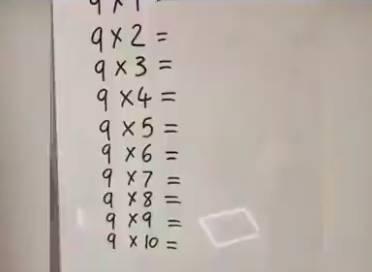 9 × 1
9 × 2 =
9 × 3 =
9 × 4 =
9 × 5 =
9 × 6 =
9 × 7 =
9 × 8 =
9 × 9 =
9 × 10 =